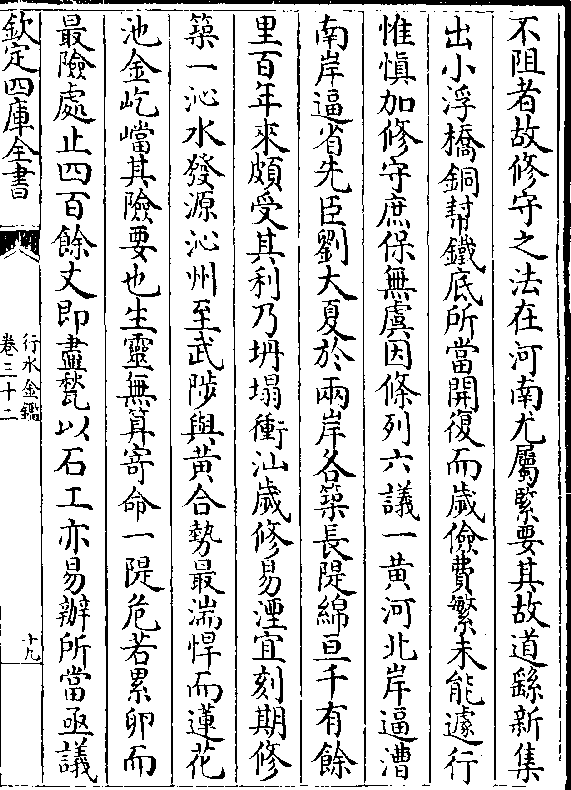 不阻者故修守之法在河南尤屬緊要其故道繇新集
出小浮橋銅幫鐵底所當開復而歲儉費繁未能遽行
惟慎加修守庶保無虞因條列六議一黃河北岸逼漕
南岸逼省先臣劉大夏於兩岸各築長隄綿亘千有餘
里百年來頗受其利乃坍塌衝汕歲修易湮宜刻期修
築一沁水發源沁州至武陟與黃合勢最湍悍而蓮花
池金屹嵣其險要也生靈無算寄命一隄危若累卵而
最險處止四百餘丈即盡甃以石工亦易辦所當亟議
欽定四庫全書
行水金鑑
卷三十二
十九